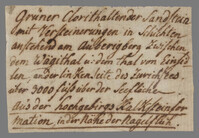 Grüner Chorithaltender Sandstein
mit Versteinerungen in Schichten
anstehend am Aubergberg zwischen
dem Wägithal u: dem thal von Einsied
len, an der linken Seite des Zürichsees
über 3000 fuß über der Seefläche
Aus der hochgebirgs Kalksteinfor
mation, in der Nähe der Nagelfluh.